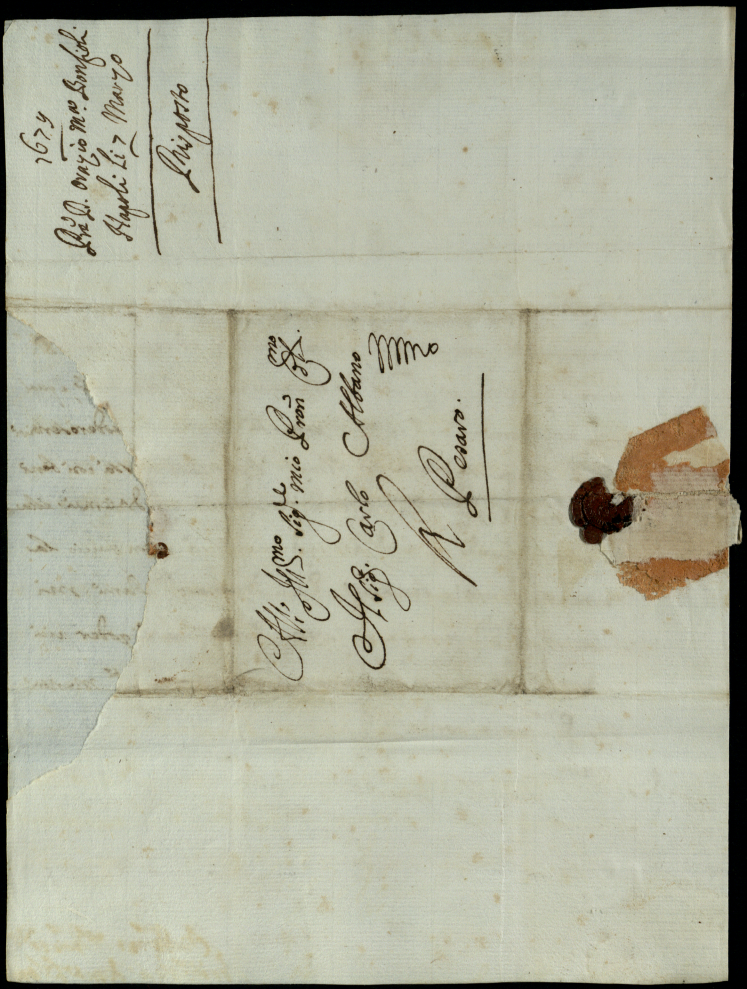 1679
P. D. Orazio Mª. Bonfioli
Napoli li 7 Marzo
Risposto
All' Ill.mo Sig.re mio Pron Col.mo
Il Sig. Carlo Albano
Pesaro.